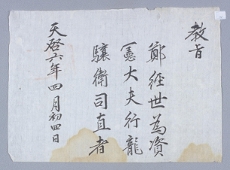 敎旨
鄭經世爲資
憲大夫行龍
驤衛司直者
天啓六年四月初四日